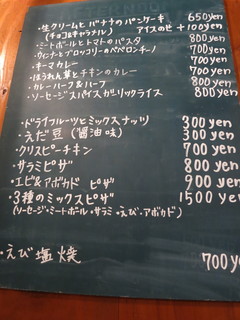 ・生クリームとバナナのパンケーキ 650yen
(チョコ&キャラメル) アイスのせ +100yen
・ミートボールとトマトのパスタ 800yen
・ウィンナとブロッコリーのペペロンチーノ 700yen
・キーマカレー 700yen
・ほうれん草とチキンのカレー 700yen
・カレーハーフ&ハーフ 800yen
・ソーセージスパイスガーリックライス 800yen
・ドライフルーツとミックスナッツ 300yen
・えだ豆(醤油味) 300yen
・クリスピーチキン 700yen
・サラミピザ 800yen
・エビ&アボカド ピザ 900yen
・3種のミックスピザ 1500yen
(ソーセージ・ミートボール・サラミ・えび・アボカド)
・えび塩焼 700ye